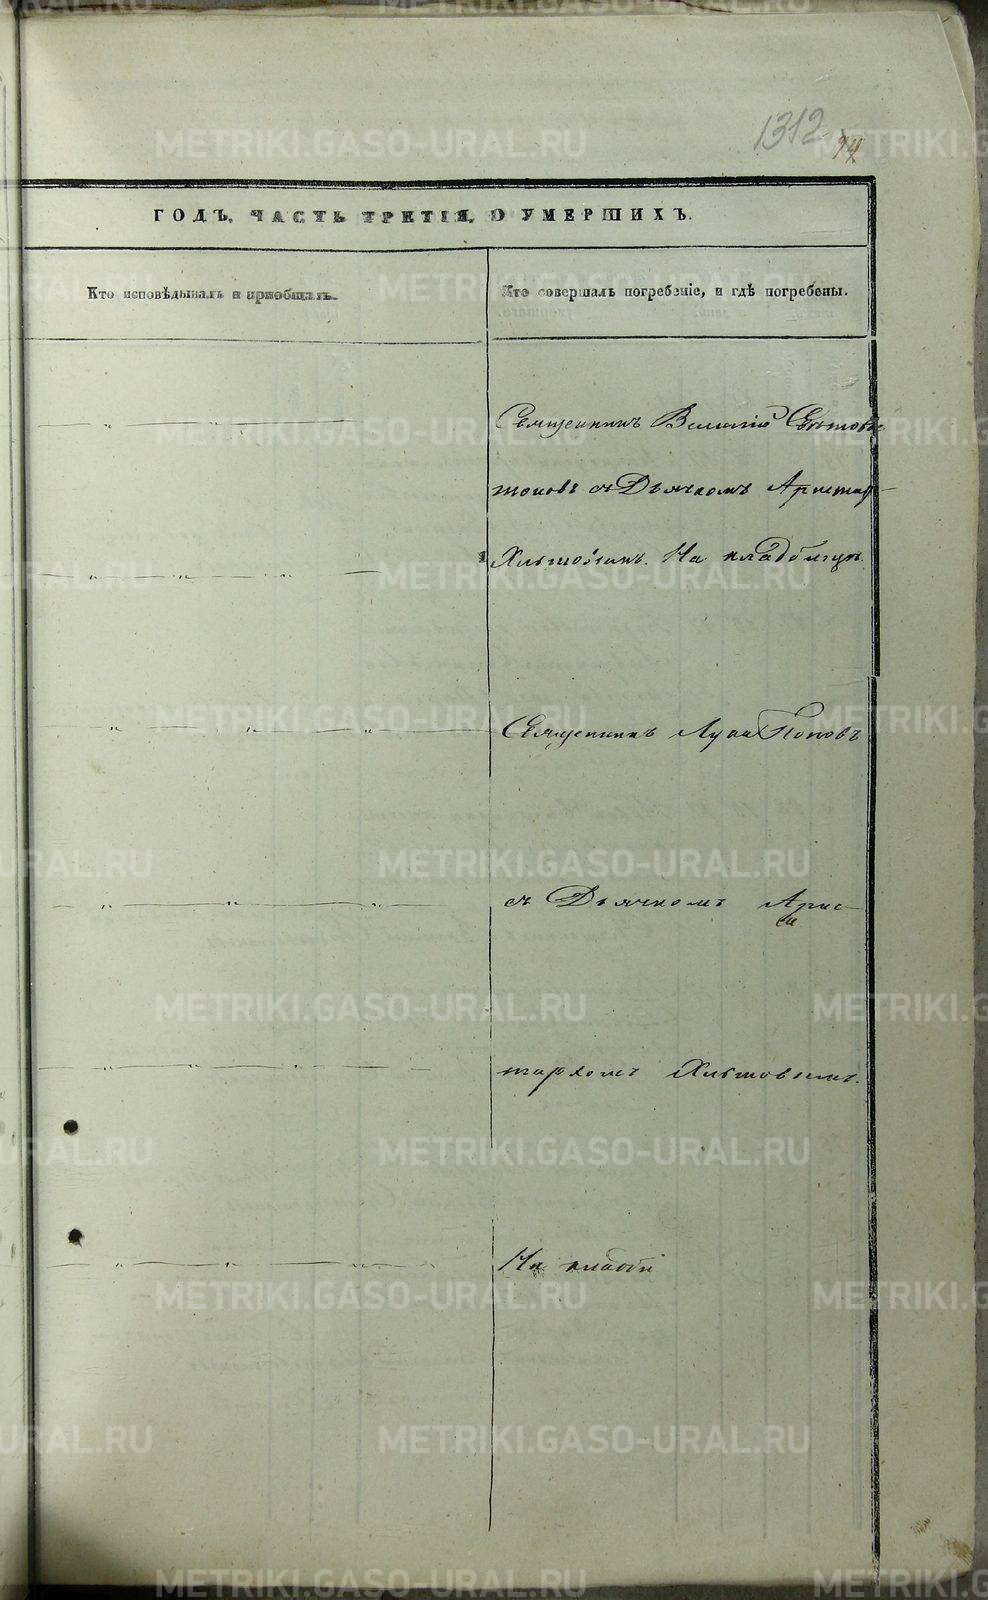 1312 94
ГОДЪ, ЧАСТЬ ТРЕТІЯ, О УМЕРШИХЪ.
Кто исповѣдывалъ и пріобщалъ.
Кто совершалъ погребеніе, и гдѣ погребены.
Священникъ
съ Дьячкомъ Аристар-
На кладбищѣ.
Священникъ Лука Поповъ
съ Дьячкомъ Арис-
тархомъ Хлытовымъ.
На кладби
METRIKI.GASO-URAL.RU